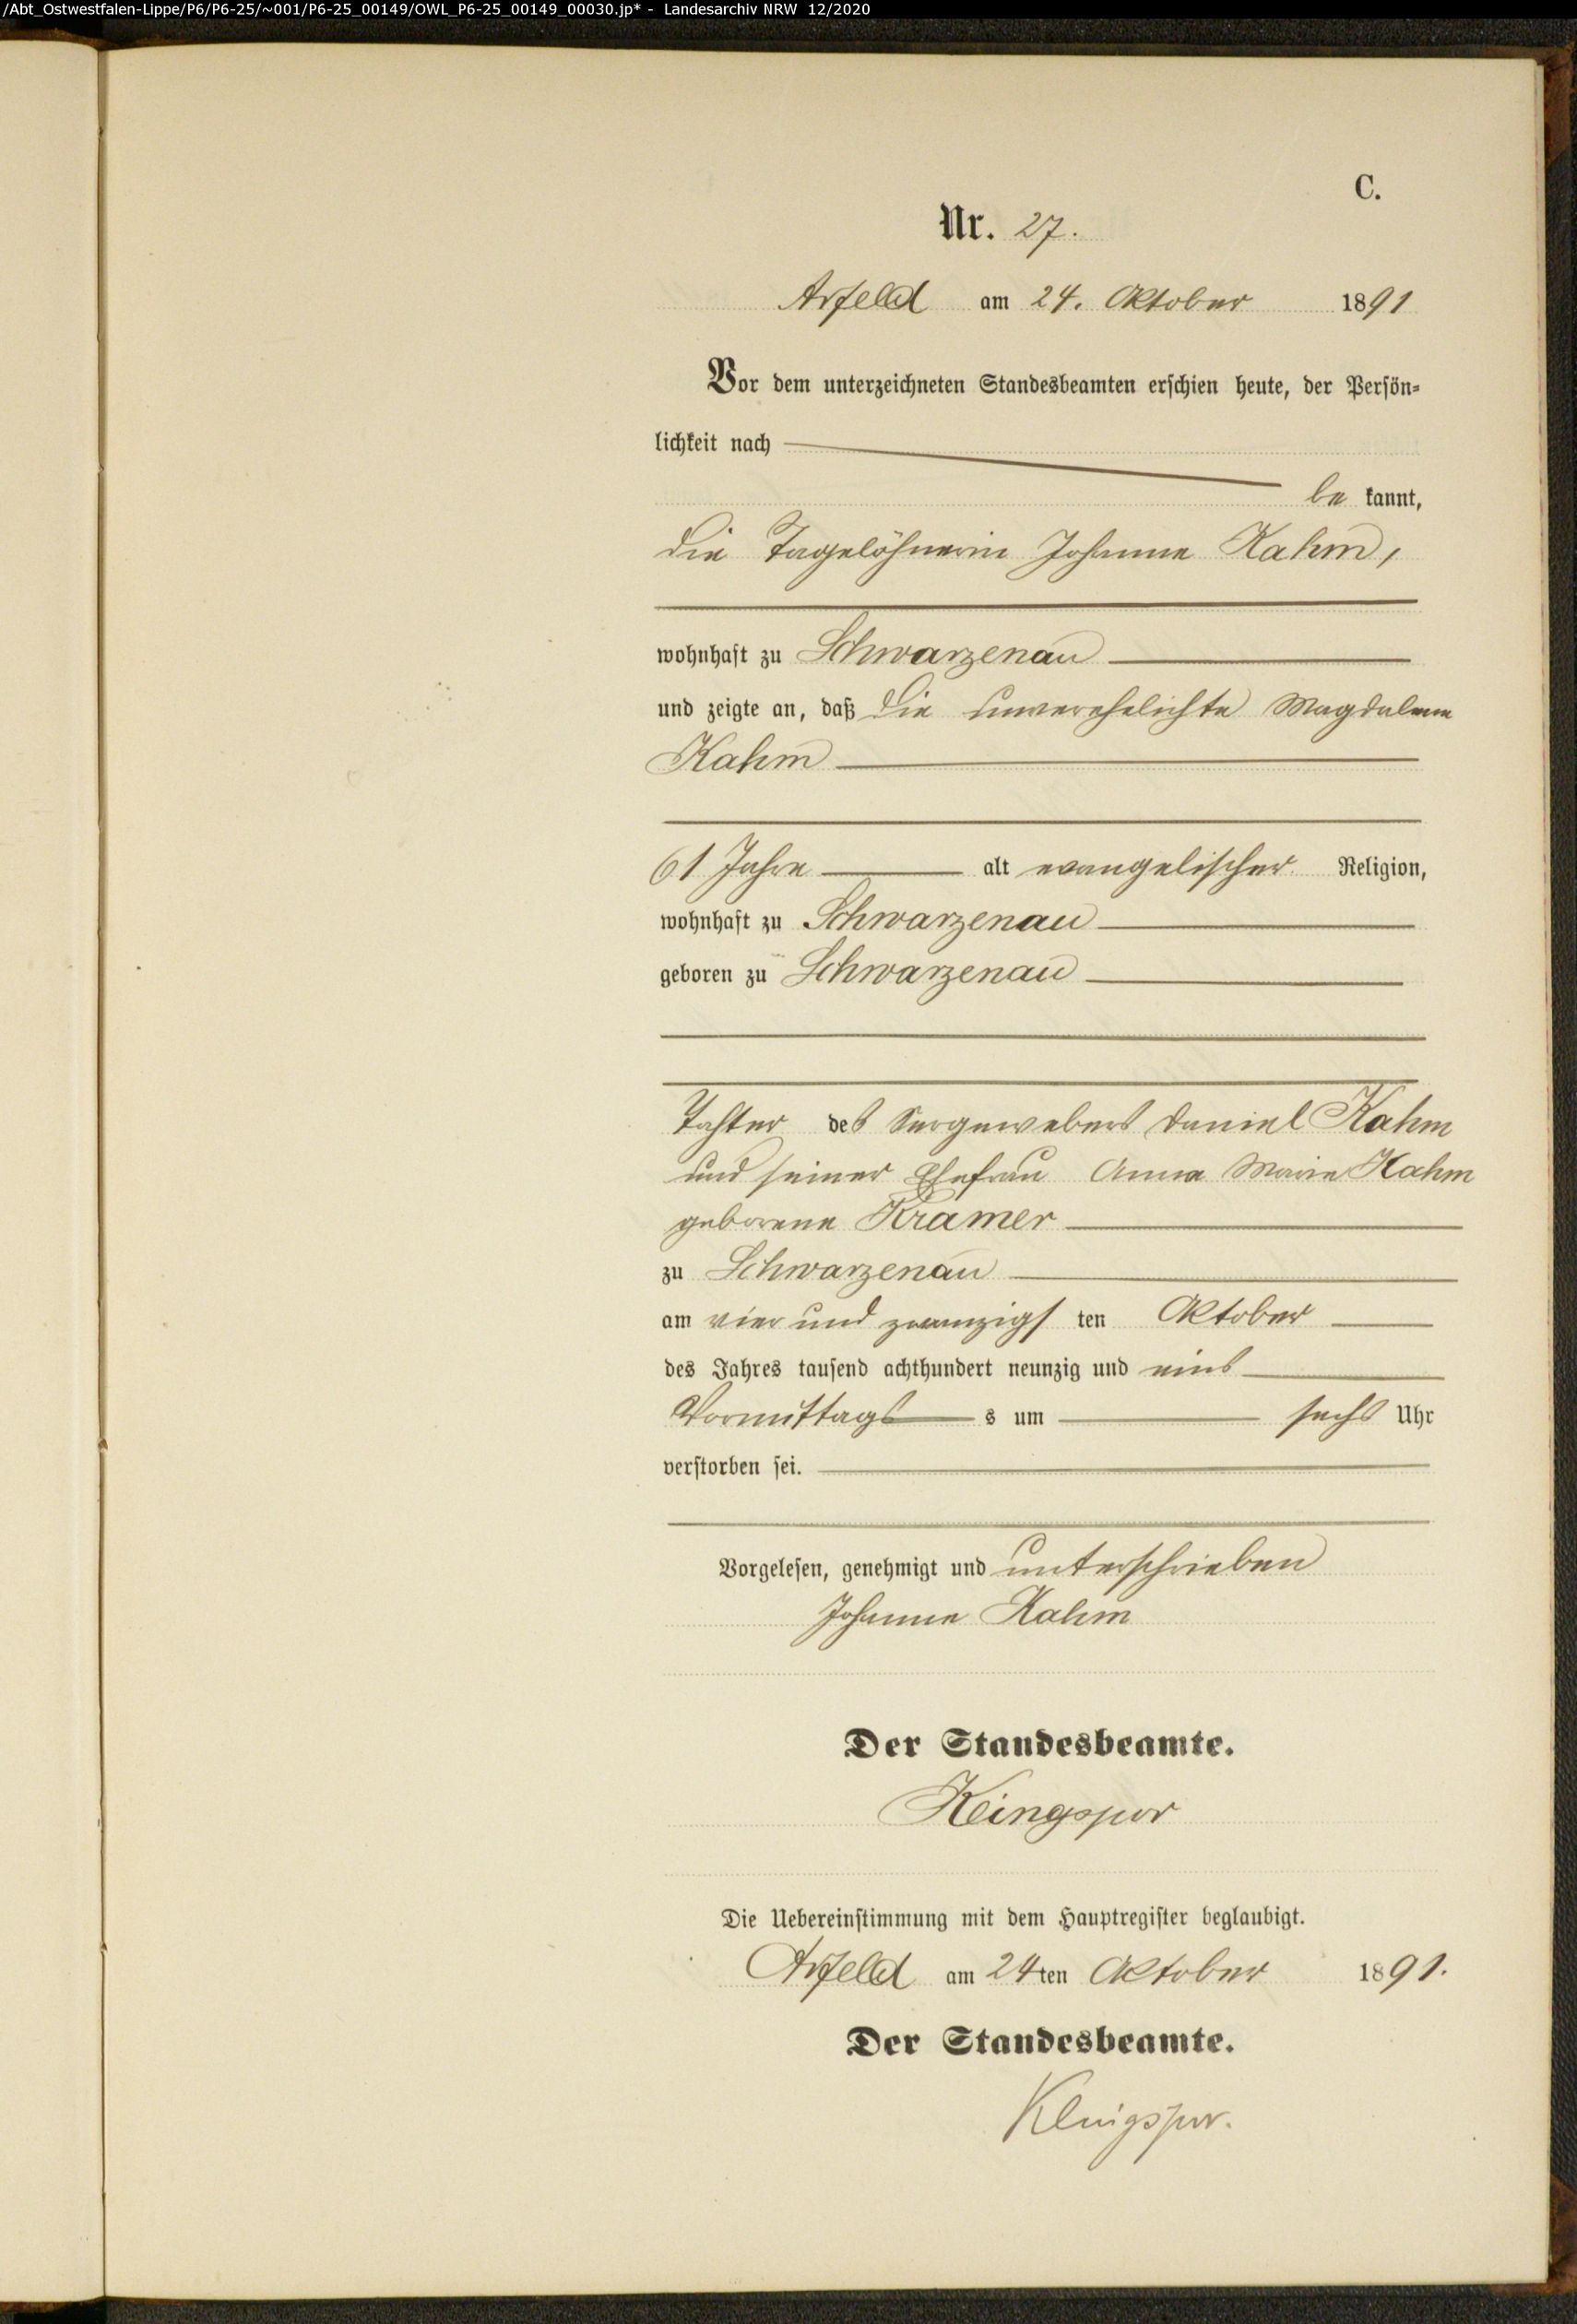 /Abt_Ostwestfalen-Lippe/P6/P6-25/~001/P6-25_00149/OWL_P6-25_00149_00030.jp* - Landesarchiv NRW 12/2020
C.
Nr. 27.
Arfeld am 24. Oktober 1891
Vor dem unterzeichneten Standesbeamten erschien heute, der Persön-
lichkeit nach
be kannt,
die Tagelöhnerin Johanne Kahm,
wohnhaft zu Schwarzenau
und zeigte an, daß die unverehelichte Magdalene
Kahm
61 Jahre alt evangelischer Religion,
wohnhaft zu Schwarzenau
geboren zu Schwarzenau
Tochter des Sergewebers Daniel Kahm
und seiner Ehefrau Anna Marie Kahm
geborene Kramer
zu Schwarzenau
am vier und zwanzigs ten Oktober
des Jahres tausend achthundert neunzig und eins
Vormittags s um sechs Uhr
verstorben sei.
Vorgelesen, genehmigt und unterschrieben
Johanne Kahm
Der Standesbeamte.
Klingspor
Die Uebereinstimmung mit dem Hauptregister beglaubigt.
Arfeld am 24ten Oktober 1891.
Der Standesbeamte.
Klingspor.